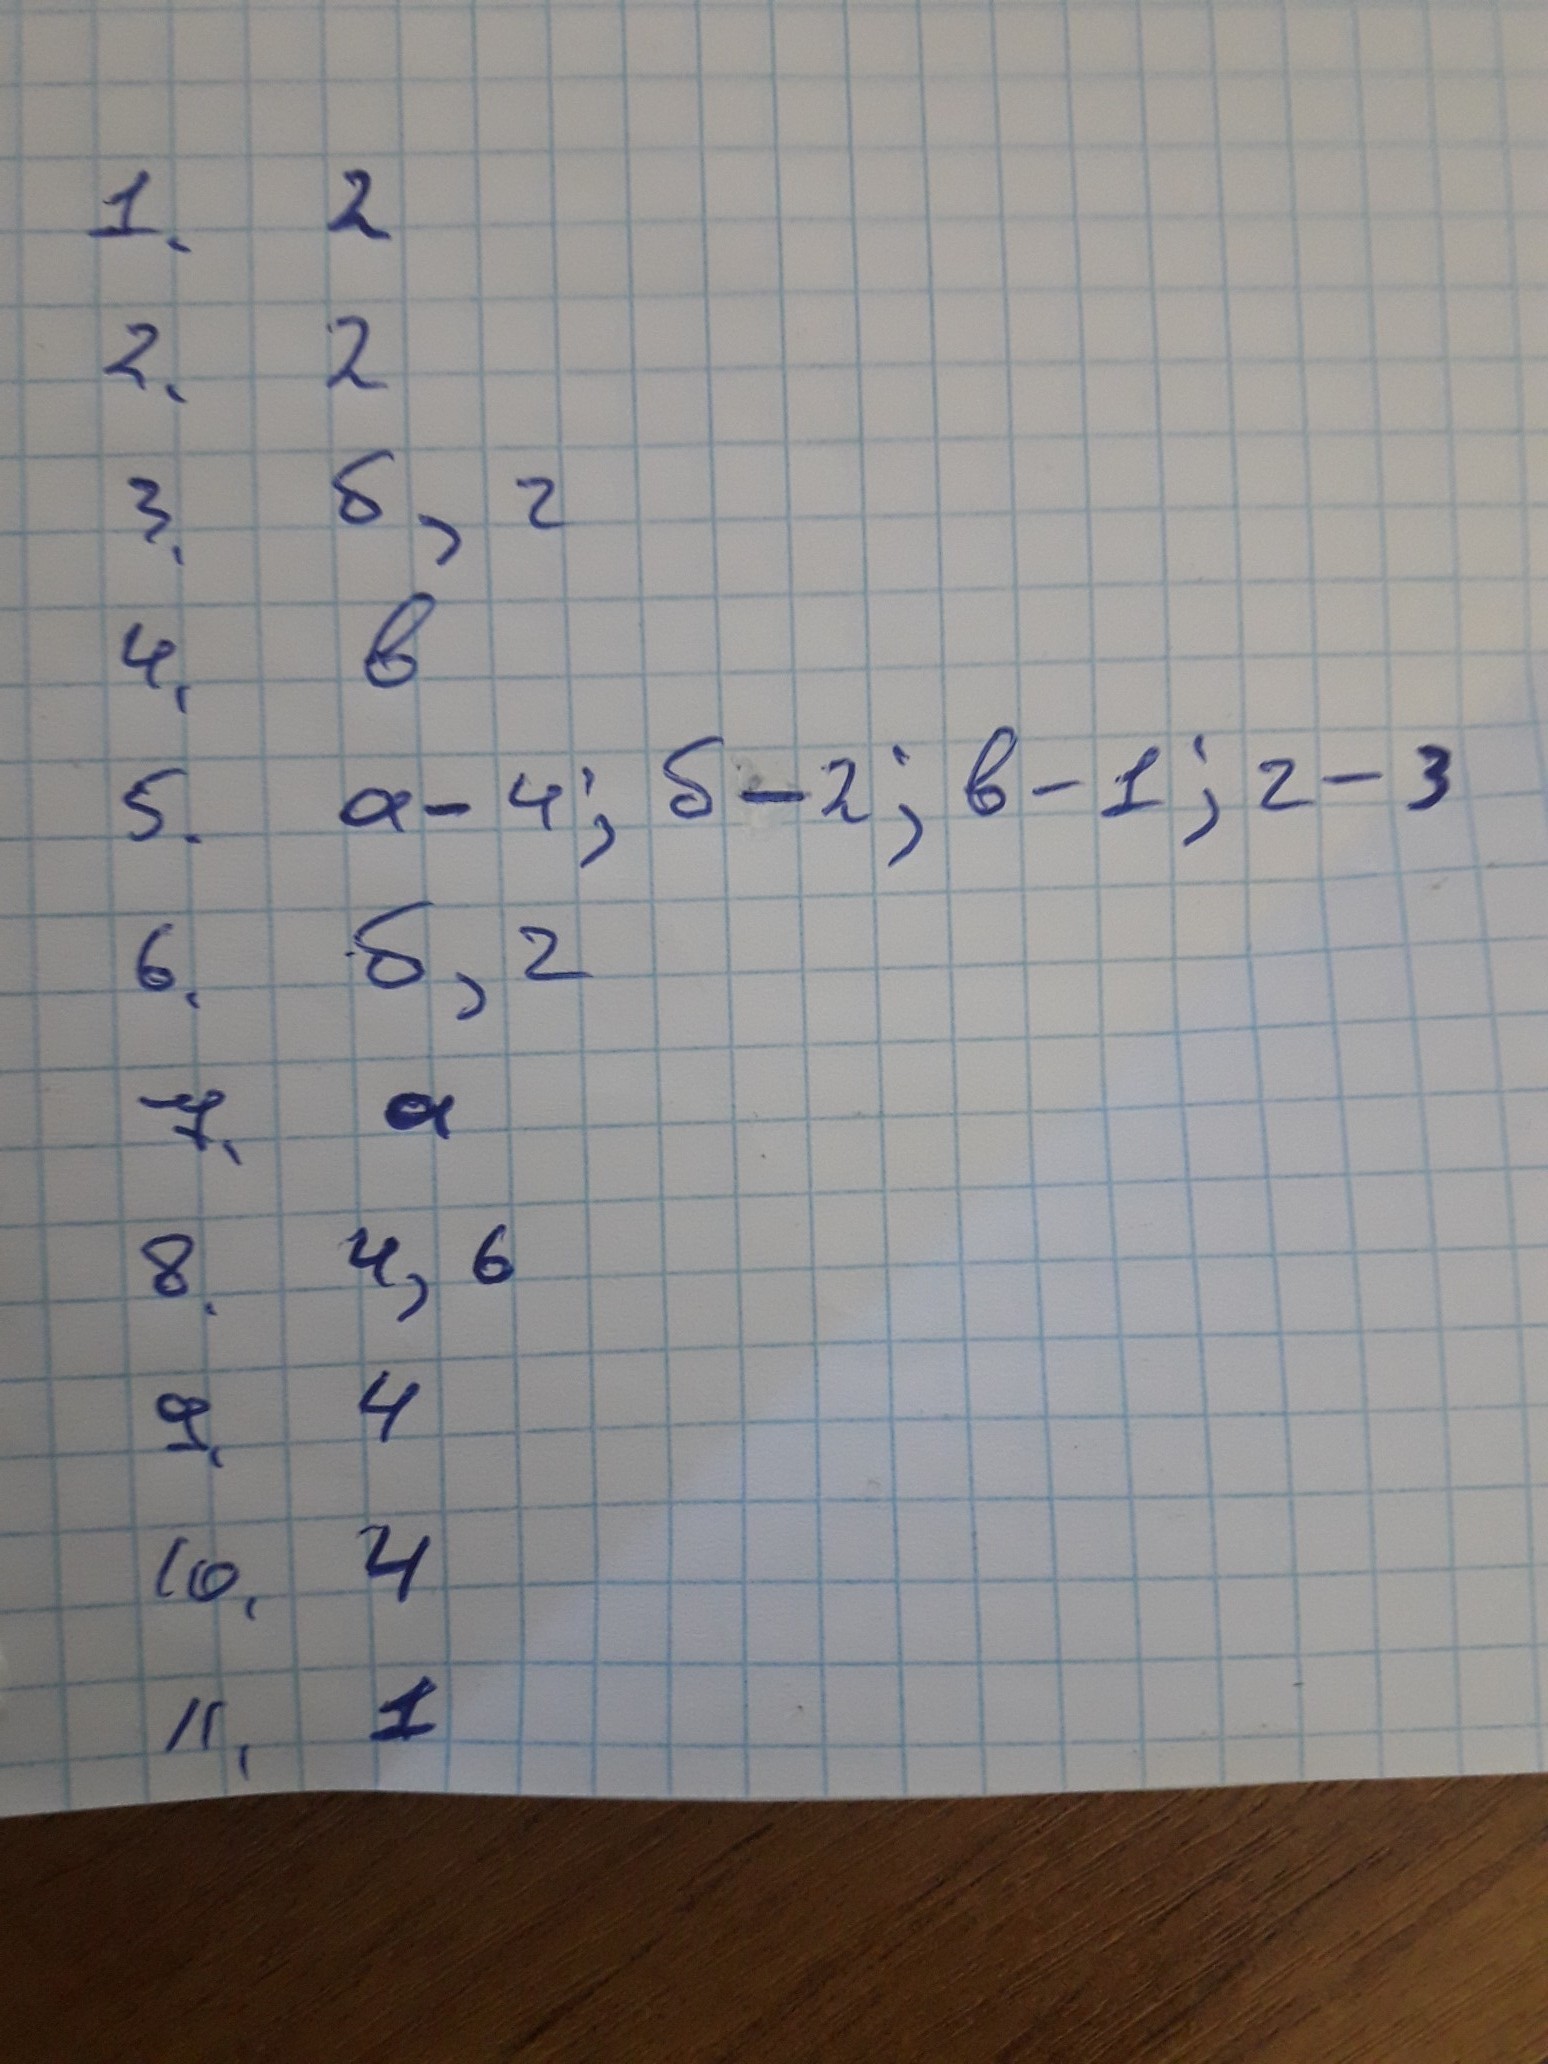 1. 2
2. 2
3. б, г
4. в
5. а - 4; б - 2; в - 1; г - 3
6. б, г
7. а
8. 4, 6
9. 4
10. 4
11. 1